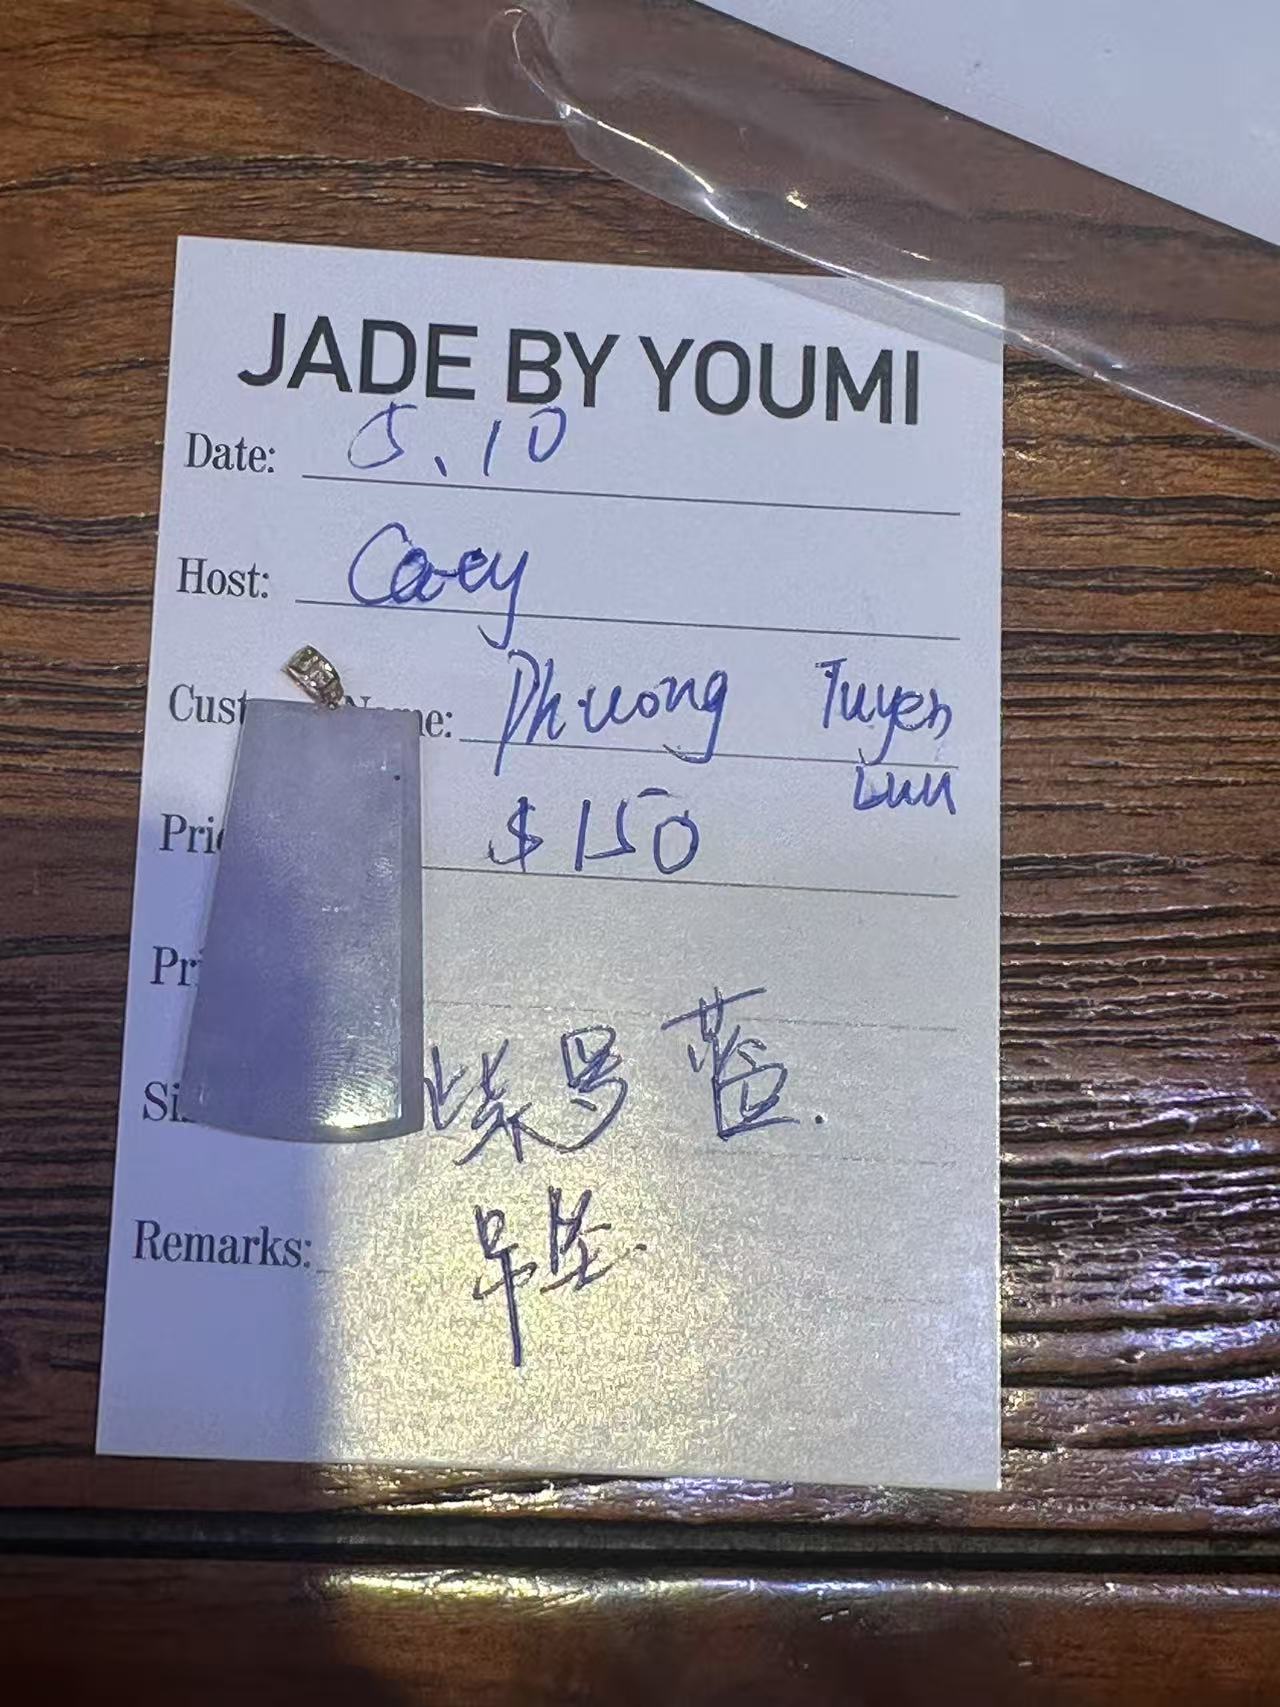 JADE BY YOUMI
Date: 5.10
Host: Caey
Cust Name: Phuong Tuyen
Luu
Pri $150
Pri
Si 紫罗蓝.
Remarks: 吊坠.